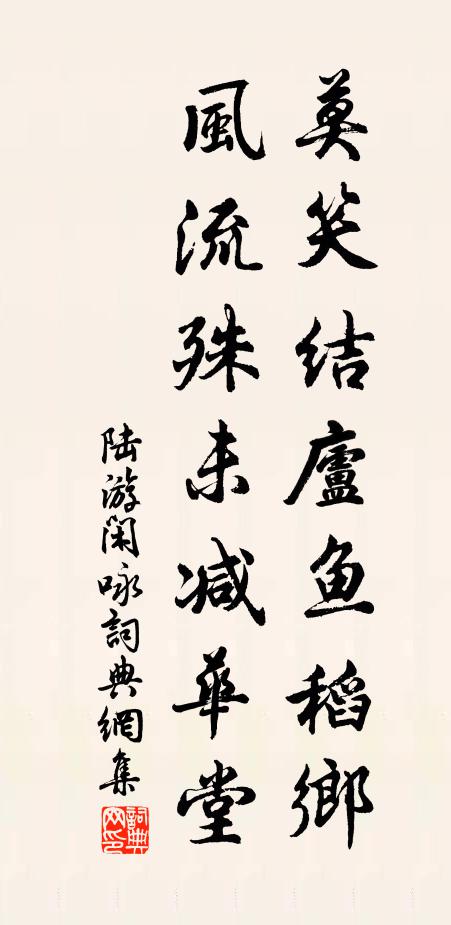 莫笑结廬鱼稻鄉
風流殊未减華堂
陆游闲咏詞典網集
詞典
网印